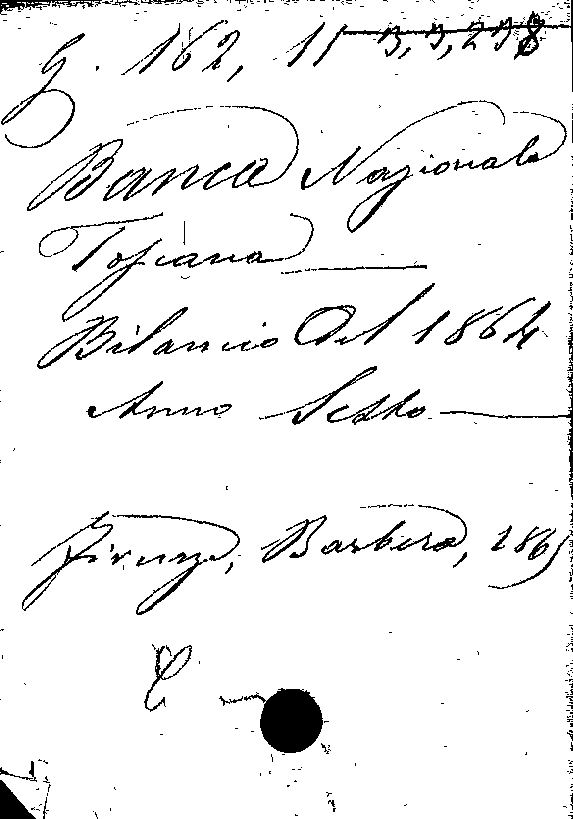 G. 162, 11 3,3,238
Banca Nazionale
Toscana
Bilancio Del 1864
Anno Sesto
Firenze, Barbera, 1865